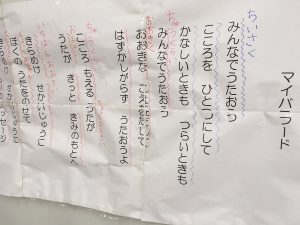 マイバラード
ちいさく
みんなでうたおう
こころを ひとつにして
かなしいときも つらいときも
みんなでうたおう
おおきな こえをだして
はずかしがらず うたおうよ
こころ もえる うたが
うたが きっと きみのもとへ
きらめけ せかいじゅうに
ぼくの うたをのせて
きらめけ せかいじゅうに